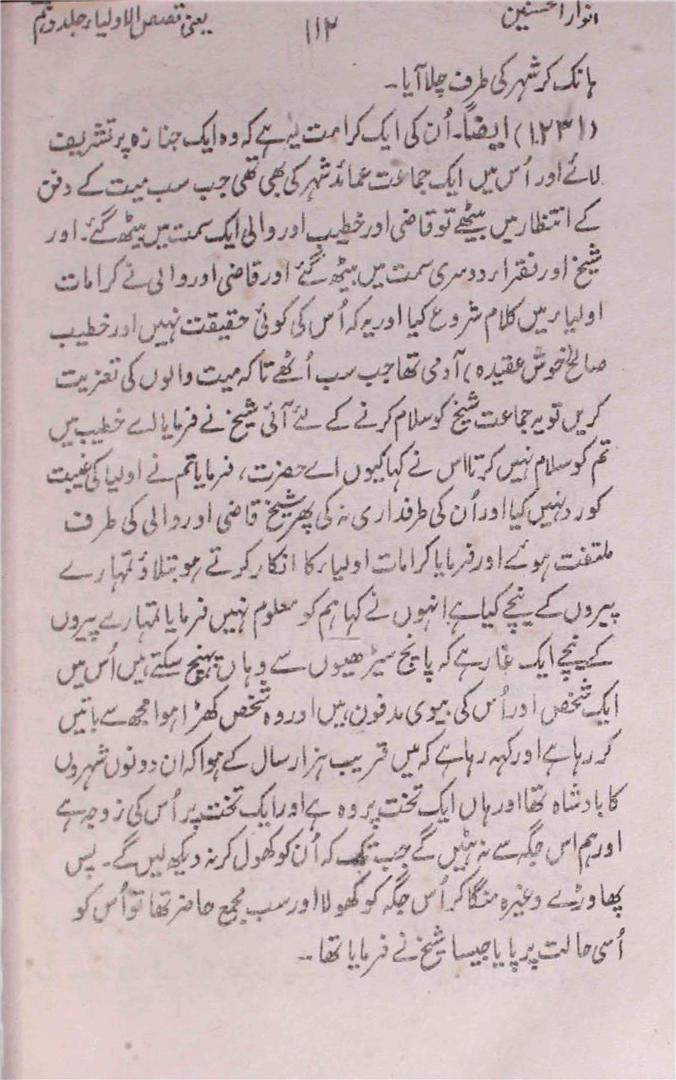 انوار المحسنین ۱۱۲ یعنی قصص الاولیاء جلد دہم
ہانک کر شہر کی طرف چلا آیا۔
(۱۲۳۱) ایضاً۔ اُن کی ایک کرامت یہ ہے کہ وہ ایک جنازہ پر تشریف
لائے اور اُس میں ایک جماعت عمائد شہر کی بھی تھی جب سب میت کے دفن
کے انتظار میں بیٹھے تو قاضی اور خطیب اور والی ایک سمت میں بیٹھ گئے۔ اور
شیخ اور فقراء دوسری سمت میں بیٹھ گئے اور قاضی اور والی نے کرامات
اولیاء میں کلام شروع کیا اور یہ کہ اُس کی کوئی حقیقت نہیں اور خطیب
صالح خوش عقیدہ) آدمی تھا جب سب اُٹھے تاکہ میت والوں کی تعزیت
کریں تو یہ جماعت شیخ کو سلام کرنے کے لئے آئی شیخ نے فرمایا اے خطیب میں
تم کو سلام نہیں کرتا اس نے کہا کیوں اے حضرت، فرمایا تم نے اولیا کی غیبت
کو رد نہیں کیا اور اُن کی طرفداری نہ کی پھر شیخ قاضی اور والی کی طرف
ملتفت ہوئے اور فرمایا کرامات اولیاء کا انکار کرتے ہو بتلاؤ تمہارے
پیروں کے نیچے کیا ہے انہوں نے کہا ہم کو معلوم نہیں فرمایا تمہارے پیروں
کے نیچے ایک غار ہے کہ پانچ سیڑھیوں سے وہاں پہنچ سکتے ہیں اُس میں
ایک شخص اور اُس کی بیوی مدفون ہیں اور وہ شخص کھڑا ہوا مجھ سے باتیں
کر رہا ہے اور کہہ رہا ہے کہ میں قریب ہزار سال کے ہوا کہ ان دونوں شہروں
کا بادشاہ تھا اور ہاں ایک تخت پر وہ ہے اور ایک تخت پر اُس کی زوجہ ہے
اور ہم اس جگہ سے نہ ہٹیں گے جب تک کہ اُن کو کھول کر نہ دیکھ لیں گے۔ پس
پھاوڑے وغیرہ منگا کر اُس جگہ کو کھولا اور سب مجمع حاضر تھا تو اُس کو
اُسی حالت پر پایا جیسا شیخ نے فرمایا تھا۔